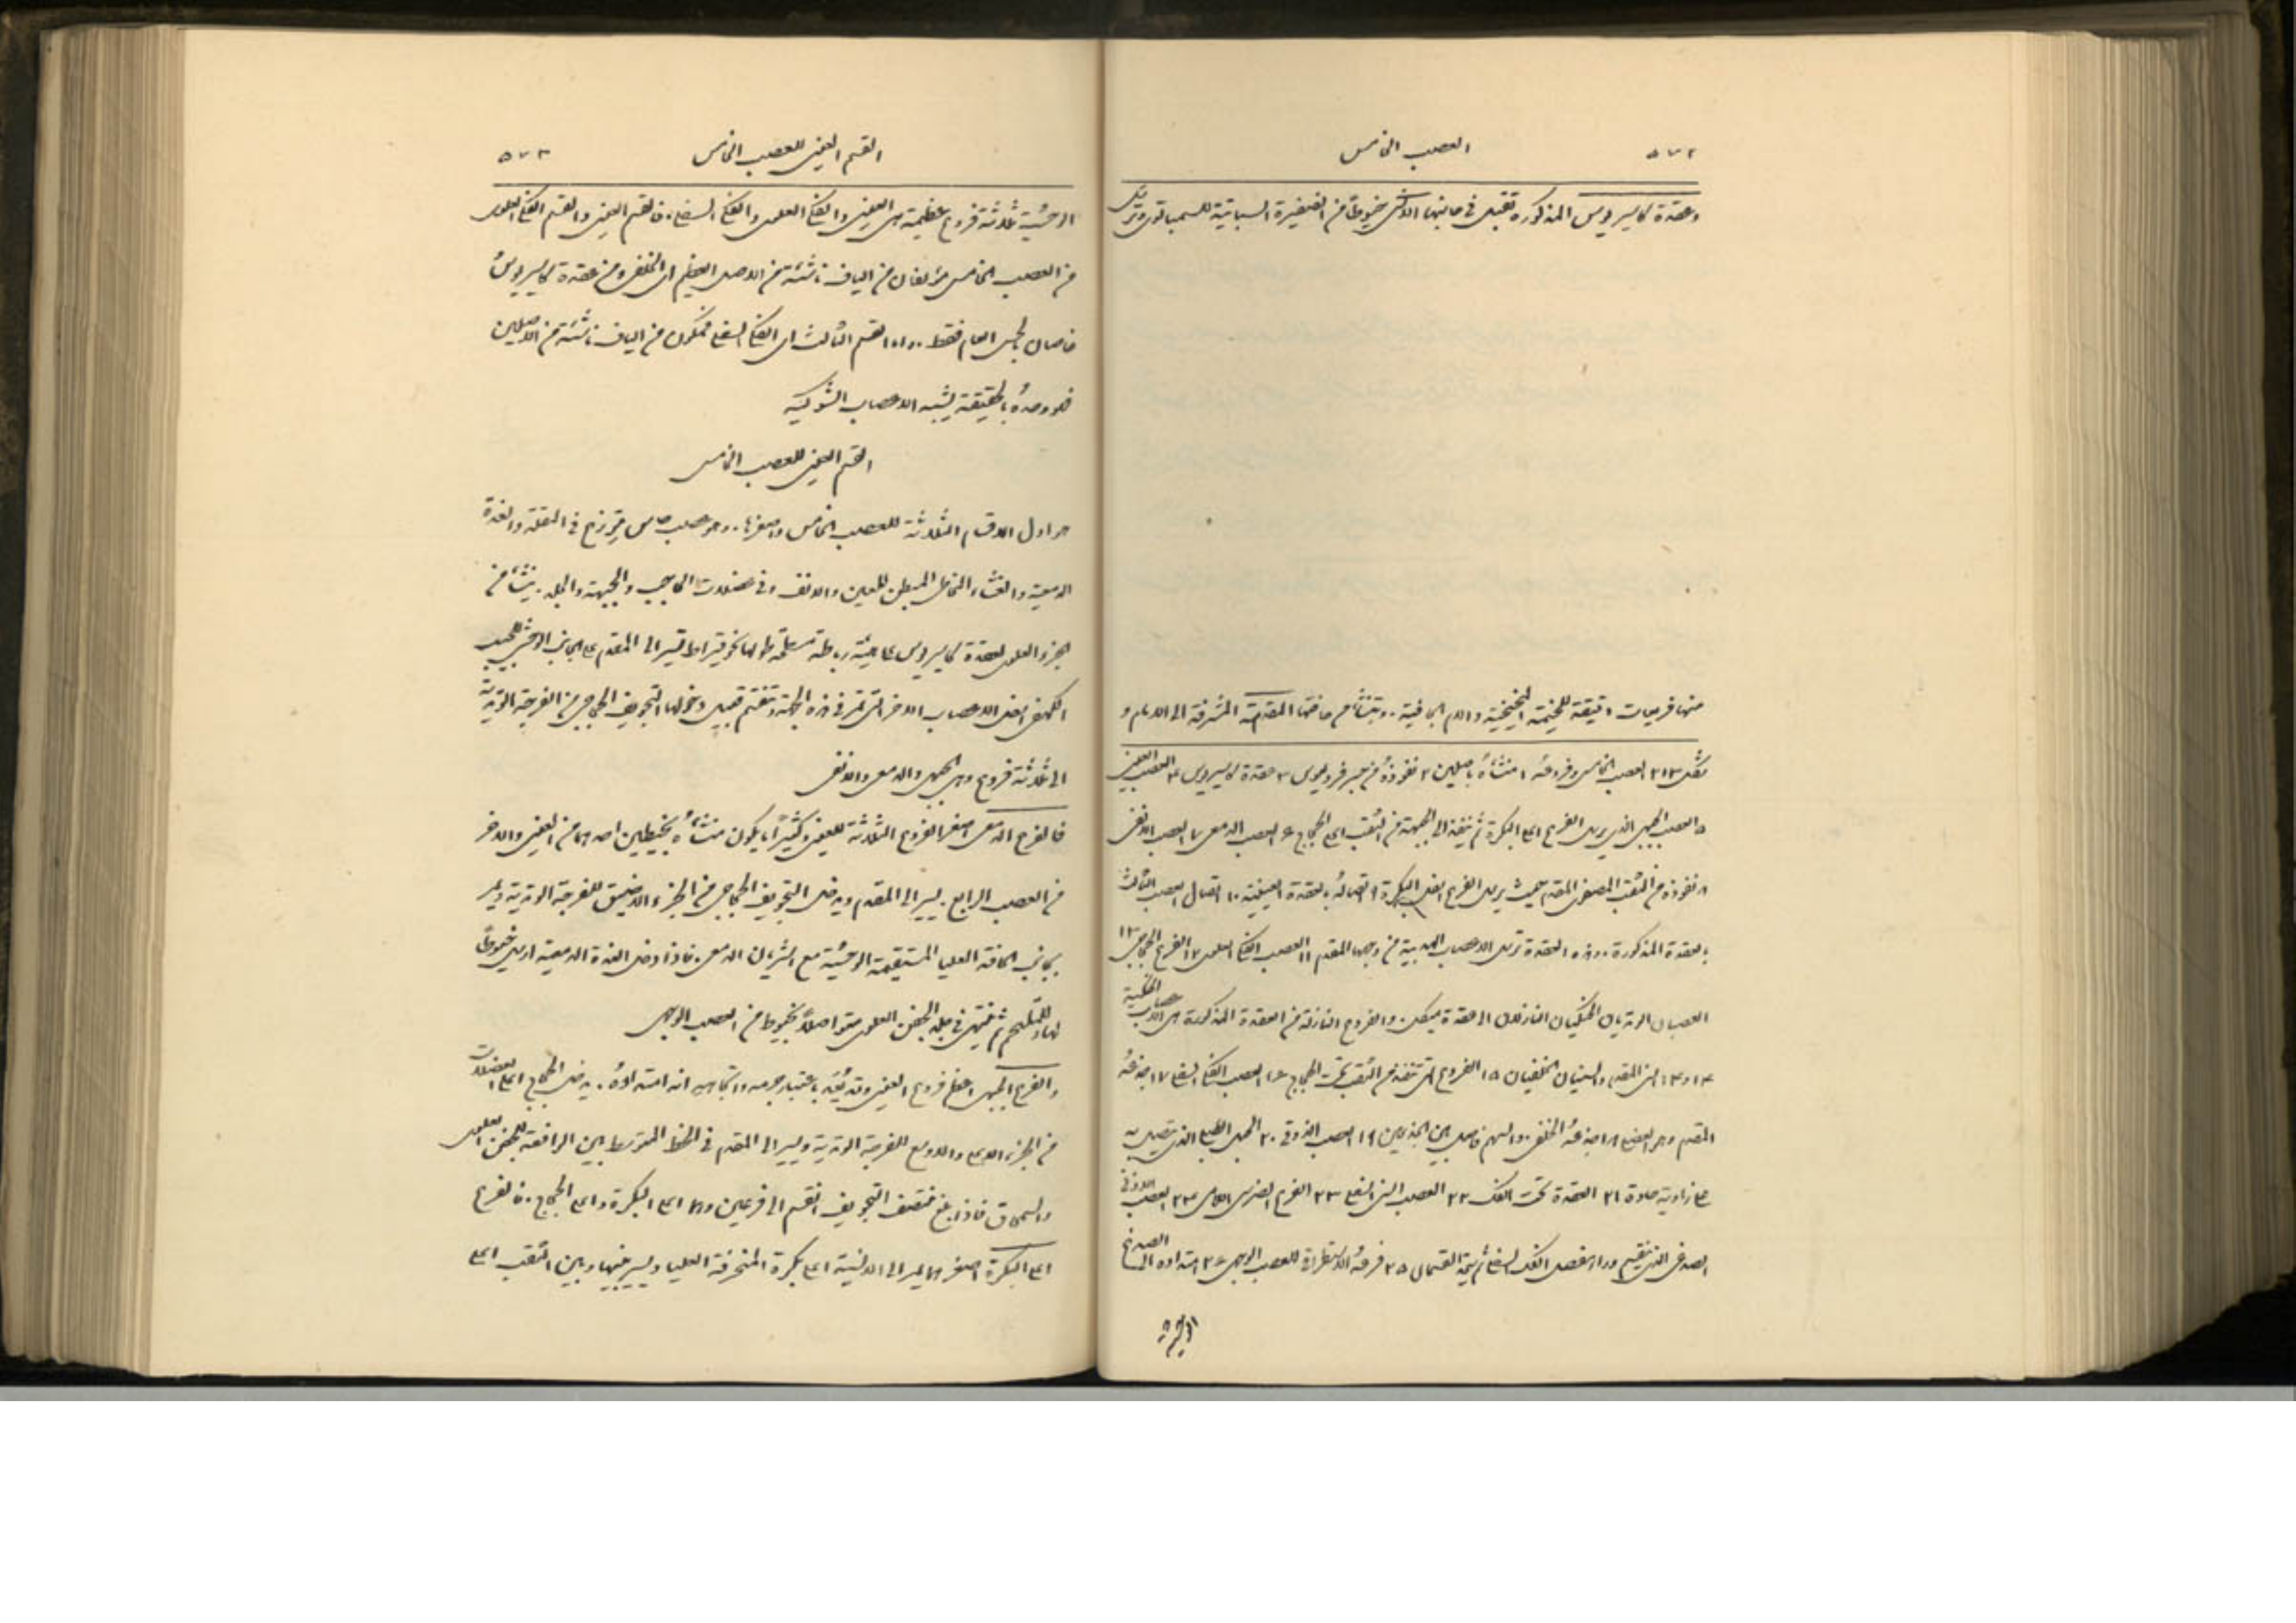 ٥٧٢ العصب الخامس
وعقدة كاسيريوس المذكورة تقبل في جانبها الانسي خيوطًا من الضفيرة السباتية للسمباتوي وترسل
منها فريعات دقيقة للخيمة المخيخية والام الجافية. وينشأ من حافتها المقدمة المشرفة الى الامام و
شكل ٢١٣ العصب الخامس وفروعه ١ منشأه باصلين ٢ نفوذه من جسر فروليوس ٣ عقدة كاسيريوس ٤ العصب العيني
٥ العصب الجبهي الذي يرسل الفرع اعلى البكرة ثم ينفذ الى الجبهة من الثقب اعلى الحجاج ٦ العصب الدمعي ٧ العصب الانفي
٨ نفوذه من الثقب المصفوي المقدم حيث يرسل الفرع اسفل البكرة ٩ اتصاله بالعقدة العينية ١٠ اتصال العصب الثالث
بالعقدة المذكورة. وهذه العقدة ترسل الاعصاب الهدبية من وجهها المقدم ١١ العصب الفكي العلوي ١٢ الفرع الحجاجي ١٣
العصبان الوتديان الحنكيان النازلان الى عقدة ميكل. والفروع النازلة من العقدة المذكورة هي الاعصاب الحنكية
١٤ و١٤ السني المقدم والسنيان الخلفيان ١٥ الفروع التي تنفذ من الثقب تحت الحجاج ١٦ العصب الفكي السفلي ١٧ جذعه
المقدم وهو العضلي ١٨ جذعه الخلفي. والسهم فاصل بين الجذعين ١٩ العصب الذوقي ٢٠ الحبل الطبلي الذي يتصل به
على زاوية حادة ٢١ العقدة تحت الفك ٢٢ العصب السني السفلي ٢٣ الفرع الضرسي اللامي ٢٤ العصب الاذني
الصدغي الذي ينقسم وراء مفصل الفك السفلي ثم يجتمع القسمان ٢٥ فرعه الاستطراقي للعصب الوجهي ٢٦ امتداده الى الصدغ
الوحشية
القسم العيني للعصب الخامس ٥٧٣
الوحشية ثلاثة فروع عظيمة هي العيني والفكي العلوي والفكي السفلي. فالقسم العيني والقسم الفكي العلوي
من العصب الخامس مؤلفان من الياف ناشئة من الاصل العظيم اي الخلفي ومن عقدة كاسيريوس
خاصان بالحس العام فقط. واما القسم الثالث اي الفكي السفلي فمكون من الياف ناشئة من الاصلين
فهو وحده بالحقيقة يشبه الاعصاب الشوكية
القسم العيني للعصب الخامس
هو اول الاقسام الثلاثة للعصب الخامس واصغرها. وهو عصب حاس يتوزع في المقلة والغدة
الدمعية والغشاء المخاطي المبطن للعين والانف وفي عضلات الحاجب والجبهة والجلد. ينشأ من
الجزء العلوي لعقدة كاسيريوس على هيئة ربطة مسطحة طولها نحو قيراط تسير الى المقدم على الجانب الوحشي للجيب
الكهفي اسفل الاعصاب الاخر التي تمر في هذه الجهة وتنقسم قبيل دخولها التجويف الحجاجي من الفرجة الوتدية
الى ثلاثة فروع وهي الجبهي والدمعي والانفي
فالفرع الدمعي اصغر الفروع الثلاثة للعيني وكثيرًا ما يكون منشأه بخيطين احدهما من العيني والاخر
من العصب الرابع. يسير الى المقدم ويدخل التجويف الحجاجي من الجزء الاضيق للفرجة الوتدية ويمر
بجانب الحافة العليا المستقيمة الوحشية مع الشريان الدمعي. فاذا دخل الغدة الدمعية ارسل خيوطًا
لها وللملتحم ثم ينتهي في جلد الجفن العلوي متواصلًا بخيوط من العصب الوجهي
والفرع الجبهي اعظم فروع العيني وقد يُعَد باعتبار جرمه واتجاهه انه امتداده. يدخل الحجاج اعلى العضلات
من الجزء الاعلى والاوسع للفرجة الوتدية ويسير الى المقدم في الخط المتوسط بين الرافعة للجفن العلوي
والسمحاق فاذا بلغ منتصف التجويف انقسم الى فرعين وهما اعلى البكرة واعلى الحجاج. فالفرع
اعلى البكرة اصغرهما يمر الى الانسية اعلى بكرة المنحرفة العليا ويسير بينها وبين الثقب اعلى